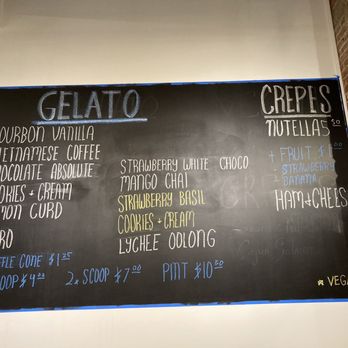 GELATO
OURBON VANILLA
IETNAMESE COFFEE
HOCOLATE ABSOLUTE
OOKIES + CREAM
MON CURD
RO
STRAWBERRY WHITE CHOCO
MANGO CHAI
STRAWBERRY BASIL
COOKIES + CREAM
LYCHEE OOLONG
FFLE CONE $1.25
2x SCOOP $7.00
PINT $10.50
CREPES
NUTELLA
+ FRUIT
- STRAWBERRY
- BANANA
HAM+CHEES
* VEGA